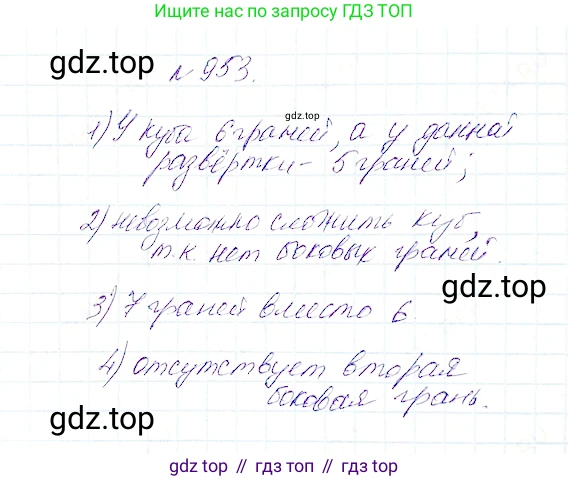 Ищите нас по запросу ГДЗ ТОП
gdz.top
№ 953.
gdz.top
1) У куба 6 граней, а у данной
развёртки - 5 граней;
2) невозможно сложить куб,
т.к. нет боковых граней.
gdz.top
3) 7 граней вместо 6.
4) отсутствует вторая
боковая грань.
gdz.top
gdz top // гдз топ // gdz.top